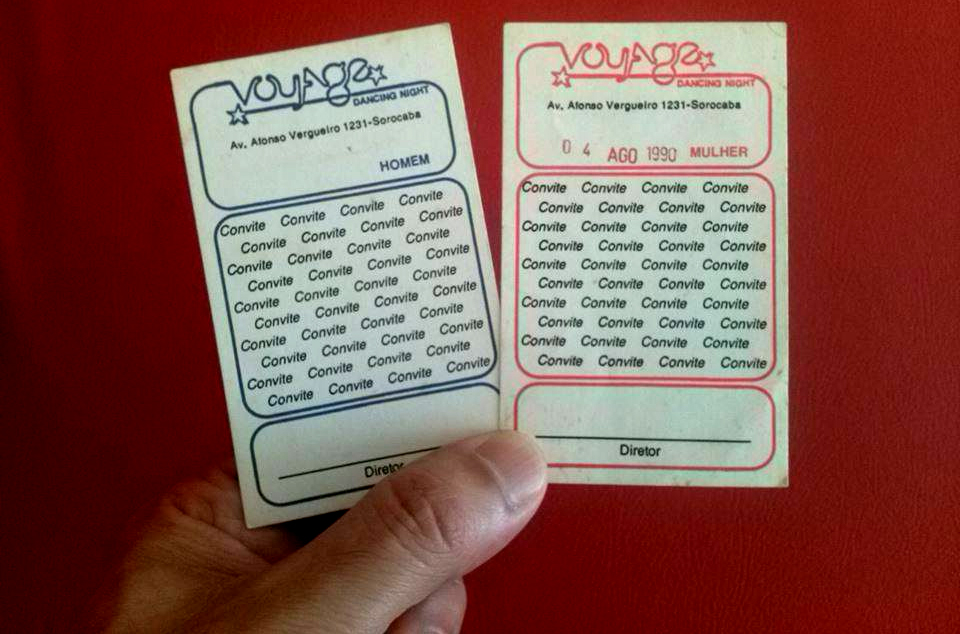 voyage
DANCING NIGHT
Av. Afonso Vergueiro 1231-Sorocaba
HOMEM
Convite Convite Convite Convite
Convite Convite Convite Convite
Convite Convite Convite Convite
Convite Convite Convite Convite
Convite Convite Convite Convite
Convite Convite Convite Convite
Convite Convite Convite Convite
Convite Convite Convite Convite
Convite Convite Convite Convite
Convite Convite Convite Convite
Diretor
voyage
DANCING NIGHT
Av. Afonso Vergueiro 1231-Sorocaba
04 AGO 1990 MULHER
Convite Convite Convite Convite
Convite Convite Convite Convite
Convite Convite Convite Convite
Convite Convite Convite Convite
Convite Convite Convite Convite
Convite Convite Convite Convite
Convite Convite Convite Convite
Convite Convite Convite Convite
Convite Convite Convite Convite
Convite Convite Convite Convite
Diretor